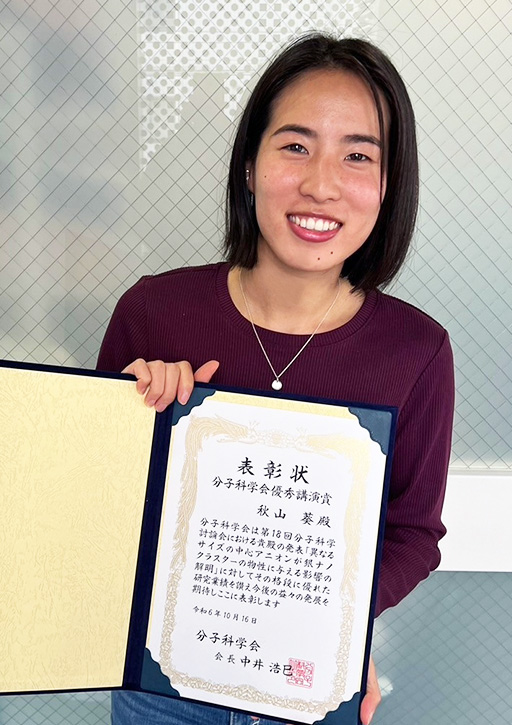 表彰状
分子科学会優秀講演賞
秋山 葵殿
分子科学会は第18回分子科学
討論会における貴殿の発表「異なる
サイズの中心アニオンが銀ナノ
クラスターの物性に与える影響の
解明」に対してその格段に優れた
研究業績を讃え今後の益々の発展を
期待しここに表彰します
令和6年10月16日
分子科学会
会長 中井 浩巳